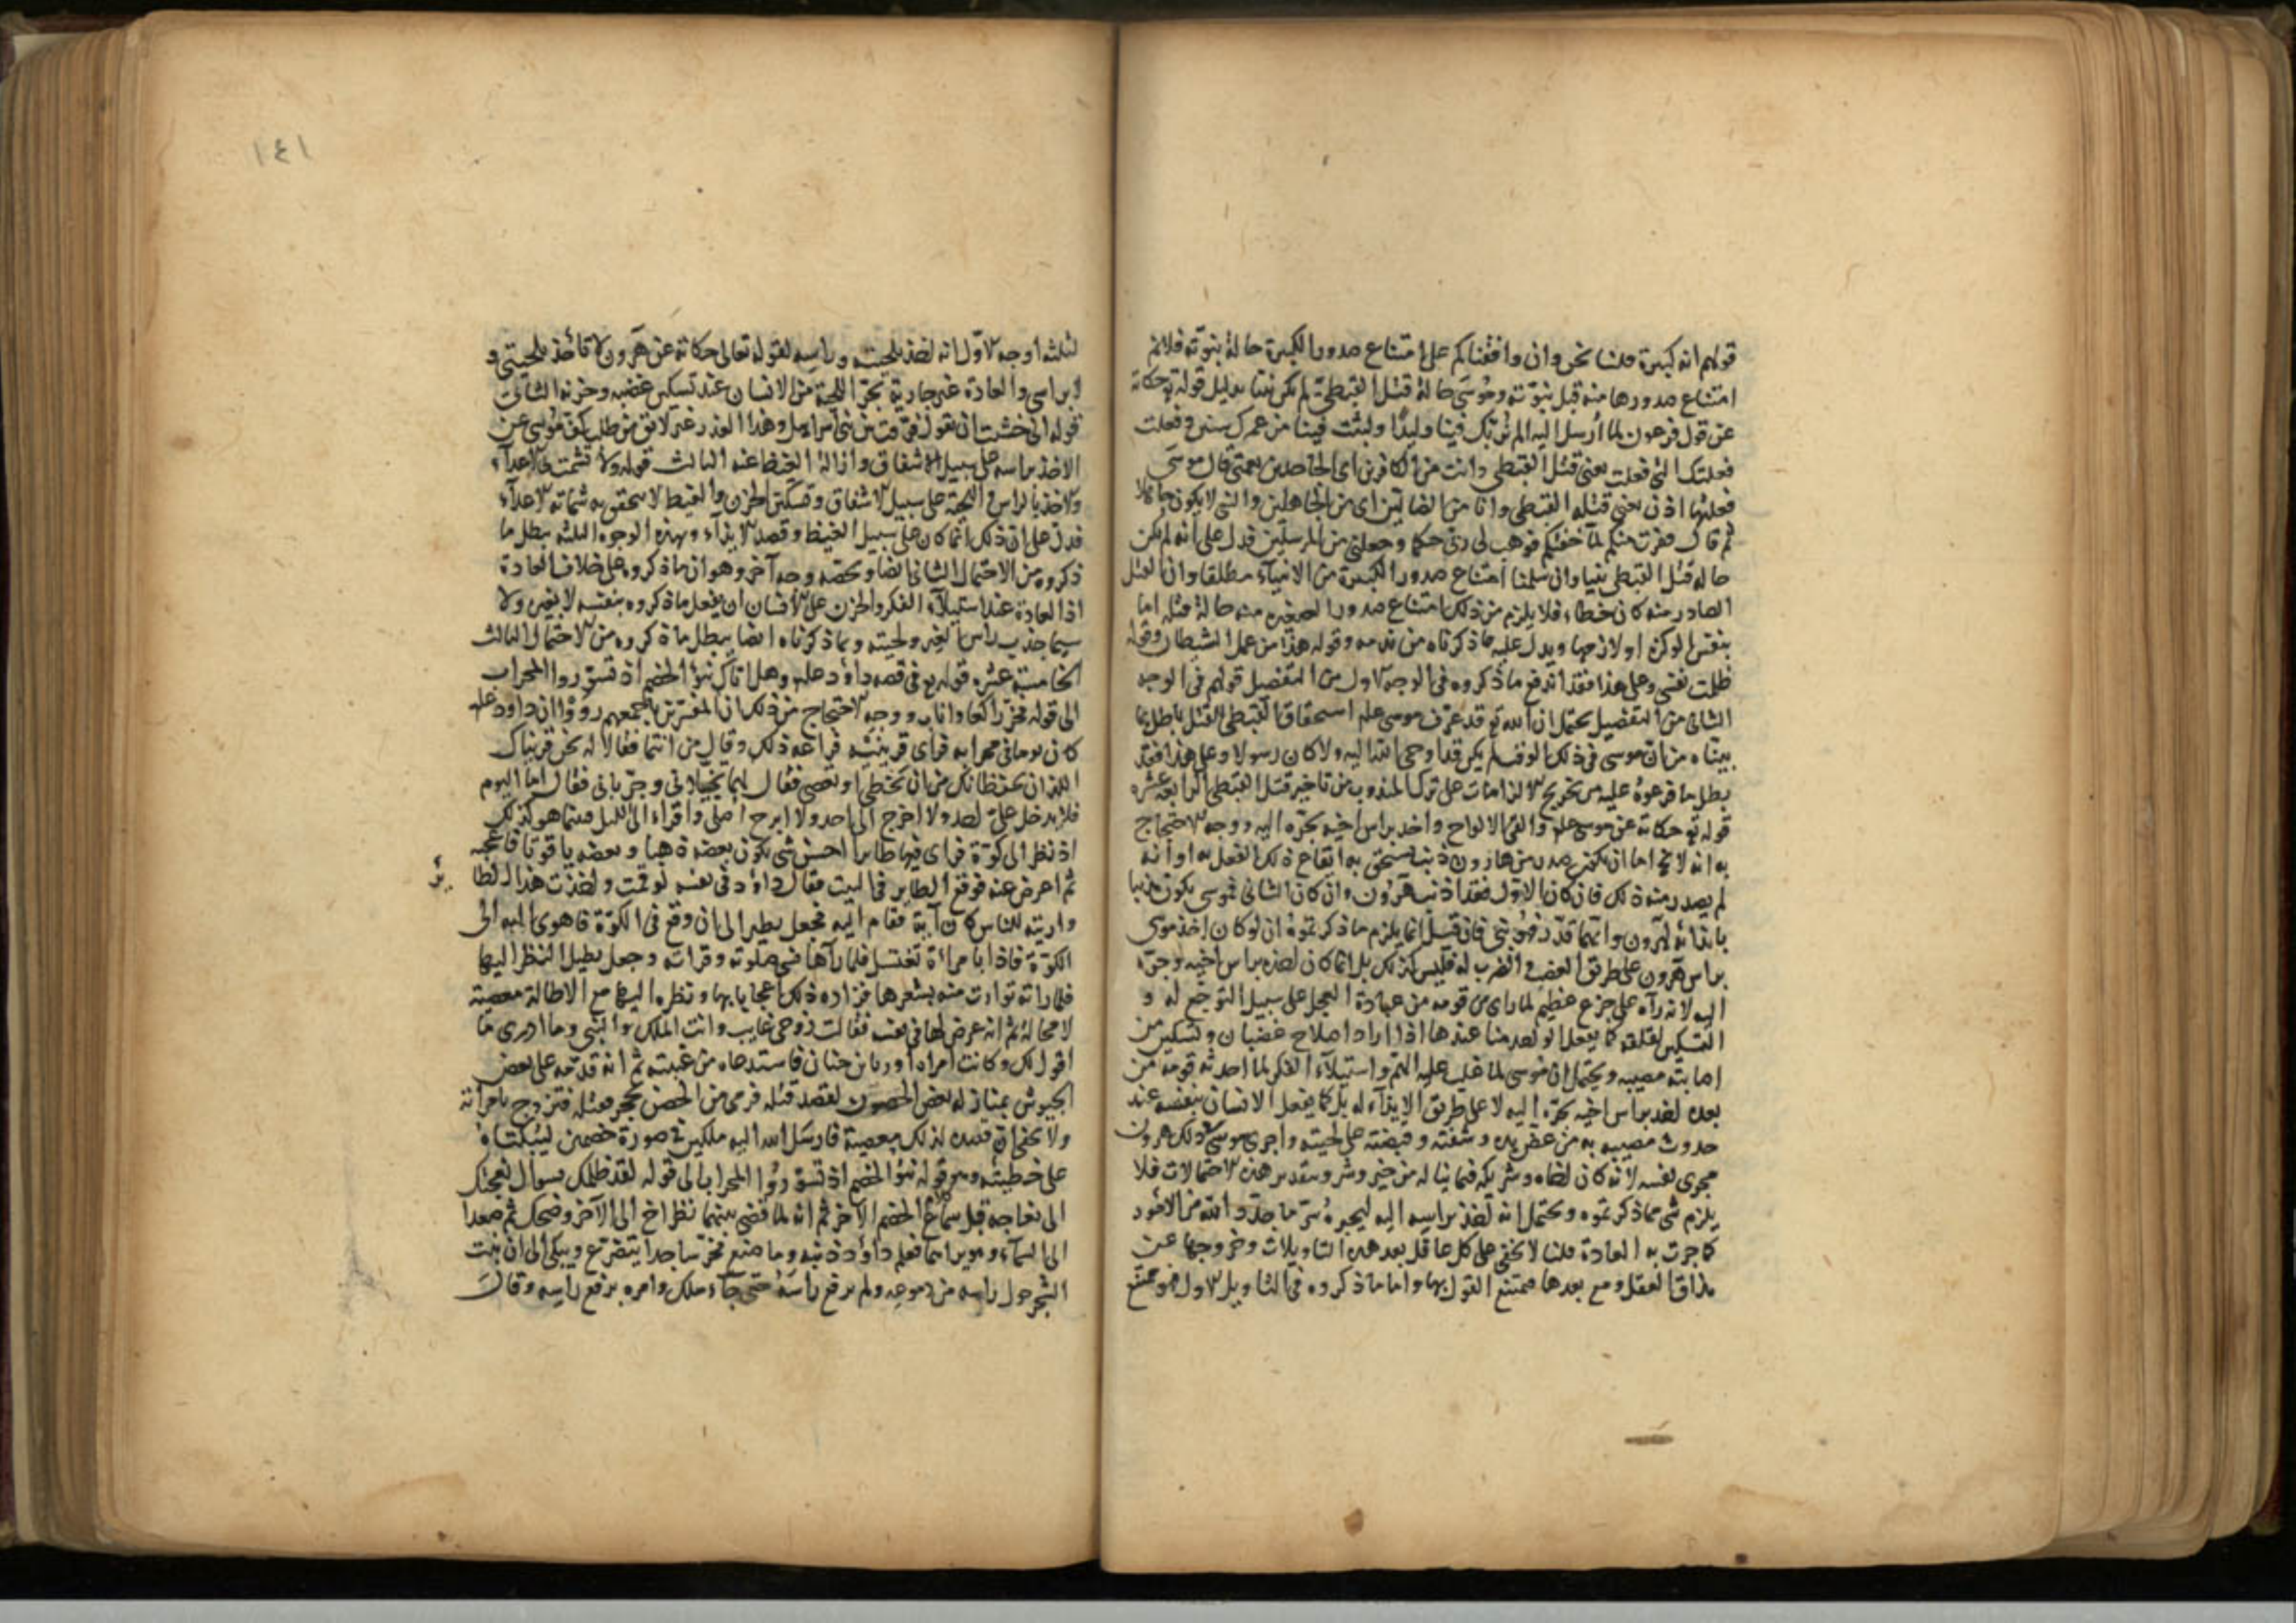 قولهم انه كبيرة قلنا نحن وان وافقناكم على امتناع صدور الكبيرة حالة نبوته فلانم
امتناع صدورها منه قبل نبوته وموسى حالة قتل القبطى لم يكن نبيا بدليل قوله تع حكاية
عن قول فرعون لما أرسل اليه الم نربك فينا وليدا ولبثت فينا من عمرك سنين وفعلت
فعلتك التى فعلت يعنى قتل القبطى وانت من الكافرين اى الجاحدين نعمتى قال موسى
فعلتها اذن يعنى قتله القبطى وانا من الضالين اى من الجاهلين والنبى لا يكون جاهلا
ثم قال ففرت منكم لما خفتكم فوهب لى ربى حكما وجعلنى من المرسلين فدل على انه لم يكن
حالة قتل القبطى نبيا وان سلمنا امتناع صدور الكبيرة من الانبياء مطلقا وان القتل
الصادر منه كان خطاء فلا يلزم من ذلك امتناع صدور الصغيره منه حالة قتله اما
بنفس الوكزه او لازمها ويدل عليه ما ذكرناه من ندمه وقوله هذا من عمل الشيطان وقوله
ظلمت نفسى وعلى هذا فقد اندفع ما ذكروه فى الوجه الاول من التفصيل قولهم فى الوجه
الثانى من التفصيل يحتمل ان الله تع قد عرف موسى علم استحقاق القبطى القتل باطل بما
بيناه من ان موسى فى ذلك الوقت لم يكن قد اوحى الله اليه ولا كان رسولا وعلى هذا فقد
بطل ما فرعوه عليه من تخريج الالزامات على ترك المندوب من تاخير قتل القبطى الرابعة عشره
قوله تع حكاية عن موسى علم والقى الالواح واخذ براس اخيه يجره اليه ووجه الاحتجاج
به انه لا يخ اما ان يكون صدر من هارون ذنب استحق به ايقاع ذلك الفعل به او انه
لم يصدر منه ذلك فان كان الاول فقد اذنب هرون وان كان الثانى فموسى يكون مذنبا
بايذائه لهرون وايهما قدر فهو نبى فان قيل انما يلزم ما ذكرتموه ان لو كان اخذ موسى
براس هرون على طريق الغضب والضرب له وليس كذلك بل انما كان اخذه براس اخيه وجره
اليه لانه رآه على جزع عظيم لما راى من قومه من عبادة العجل على سبيل التوجع له و
التسكين لقلقه كما يفعل الواحد منا عندها اذا اراد اصلاح غضبان وتسكين من
اصابته مصيبه ويحتمل ان موسى لما غلب عليه الهم واستيلاء الفكر لما احدثه قومه من
بعده اخذ براس اخيه يجره اليه لا على طريق الايذاء له بل كما يفعل الانسان بنفسه عند
حدوث مصيبه به من عض يده وشفته وقبضته على لحيته واجرى موسى ذلك هرون
مجرى نفسه لانه كان اخاه وشريكه فيما يناله من خير وشر وبتقدير هذه الاحتمالات فلا
يلزم شى مما ذكرتموه ويحتمل انه اخذ براسه اليه ليخبره سرا ما جد واتته من الامور
كما جرت به العادة قلنا لا يخفى على كل عاقل بعد هذه التاويلات وخروجها عن
مذاق العقل ومع بعدها فممتنع القول بها واما ما ذكروه فى التاويل الاول فهو ممتنع
١٤١
لثلثه اوجه الاول انه اخذ بلحيته وراسه لقوله تعالى حكاية عن هرون لا تاخذ بلحيتى و
لا براسى والعادة غير جارية بجر اللحية من الانسان عند تسكين غضبه وحزنه الثانى
قوله انى خشيت ان تقول فرقت بين بنى اسراييل وهذا العذر غير لائق من طلب كف موسى عن
الاخذ براسه على سبيل الاشفاق وازالة الغيظ عنه الثالث قوله ولا تشمت بى الاعداء
والاخذ بالراس واللحية على سبيل الاشفاق وتسكين الحزن والغيظ لا يتحقق به شماتة الاعداء
فدل على ان ذلك انما كان على سبيل الغيظ وقصد الايذاء وبهذه الوجوه الثلثه بطل ما
ذكروه من الاحتمال الثانى ايضا ويخصه وجه آخر وهو ان ما ذكروه على خلاف العادة
اذ العادة عند استيلاء الفكر والحزن على الانسان ان يفعل ما ذكروه بنفسه لا بغيره ولا
سيما جذب راس الغير ولحيته وبما ذكرناه ايضا يبطل ما ذكروه من الاحتمال الثالث
الخامسة عشره قوله تع فى قصه داود علم وهل اتاك نبؤ الخصم اذ تسوروا المحراب
الى قوله فخر راكعا واناب ووجه الاحتجاج من ذلك ان المفسرين باجمعهم رووا ان داود علم
كان يوما فى محرابه فراى قرينيه فراعه ذلك وقال من انتما فقالا له نحن قريناك
اللذان يحفظانك من ان تخطى او تعصى فقال انما يخيلانى وجربانى فقال لهما اليوم
فلا يدخل على احد ولا اخرج الى احد ولا ابرح اصلى واقراء الى الليل فبينما هو كذلك
اذ نظر الى كوة فراى فيها طايرا احسن شى يكون بعضه ذهبا وبعضه ياقوتا فاعجبه
ثم اعرض عنه فوقع الطاير فى البيت فقال داود فى نفسه لو قمت واخذت هذا الطا
ير
واريته للناس كان آية فقام اليه فجعل يطير الى ان وقع فى الكوة فاهوى اليه الى
الكوة فاذا بامراة تغتسل فلما رآها نسى صلوته وقراته وجعل يطيل النظر اليها
فلما راته توارت منه بشعرها فزاده ذلك اعجابا بها ونظره اليها مع الاطالة معصية
لا محالة ثم انه عرض لها فى نفسه فقالت زوجى غايب وانت الملك والنبى وما ادرى ما
اقول لك وكانت امراه اوريا بن حنان فاستدعاه من غيبته ثم انه قدمه على بعض
الجيوش بمنازلة بعض الحصون لقصد قتله فرمى من الحصن بحجر فقتله فتزوج بامراته
ولا يخفى ان قصده لذلك معصية فارسل الله اليه ملكين فى صورة خصمين ليبكتاه
على خطيئته وهو قوله نبؤ الخصم اذ تسوروا المحراب الى قوله لقد ظلمك بسوال نعجتك
الى نعاجه قبل سماع الخصم الآخر ثم انه لما قضى بينهما نظر اخ الى الآخر وضحك ثم صعدا
الى السماء وهو يراهما فعلم داود ذنبه وما صنع فخر ساجدا يتضرع ويبكى الى ان نبت
الشجر حول راسه من دموعه ولم يرفع راسه حتى جاء ملك وامره برفع راسه وقال